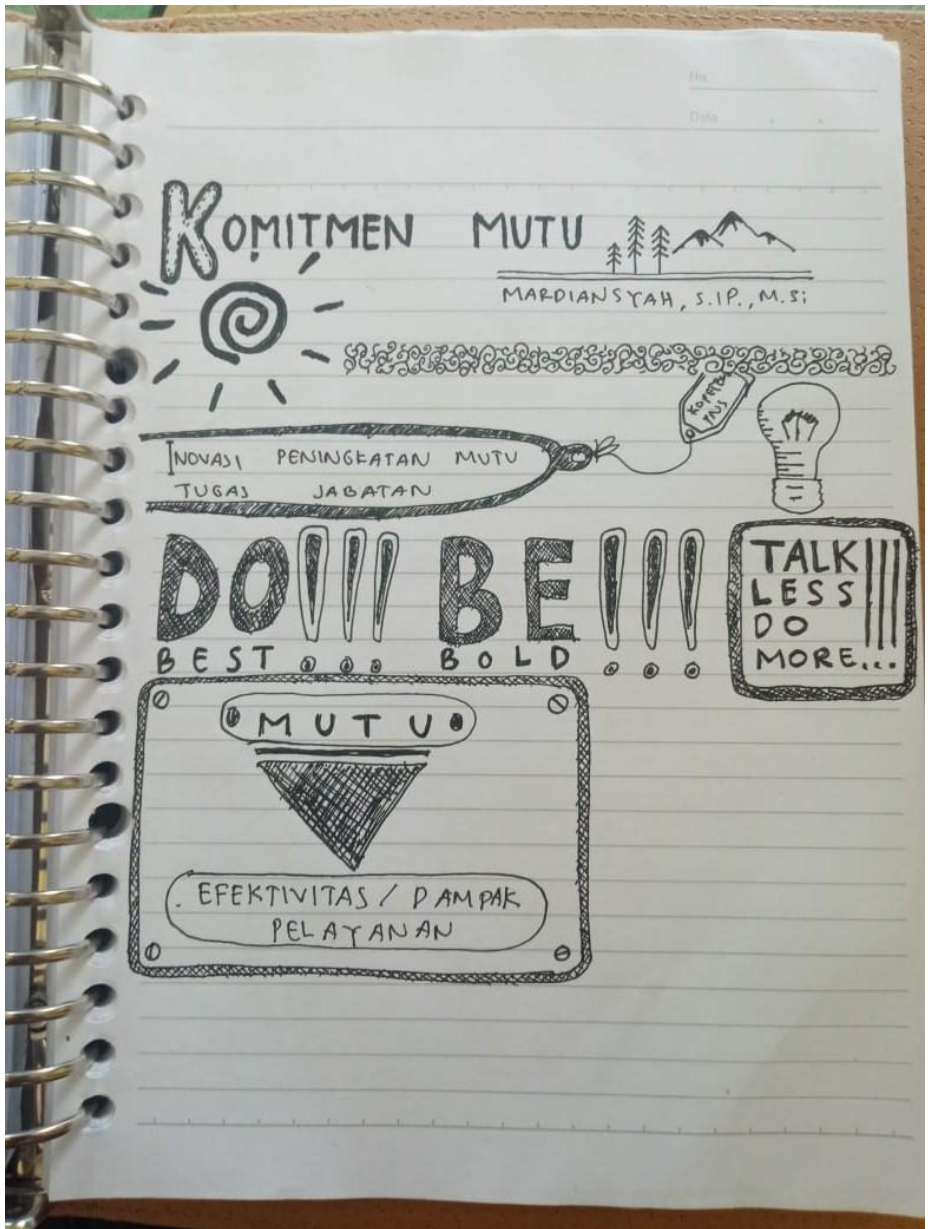 No.
Date
KOMITMEN MUTU
MARDIANSYAH, S.IP., M.Si
PNS
INOVASI PENINGKATAN MUTU
TUGAS JABATAN
DO!!! BE!!!
BEST BOLD
TALK
LESS
DO
MORE...
MUTU
EFEKTIVITAS / DAMPAK
PELAYANAN